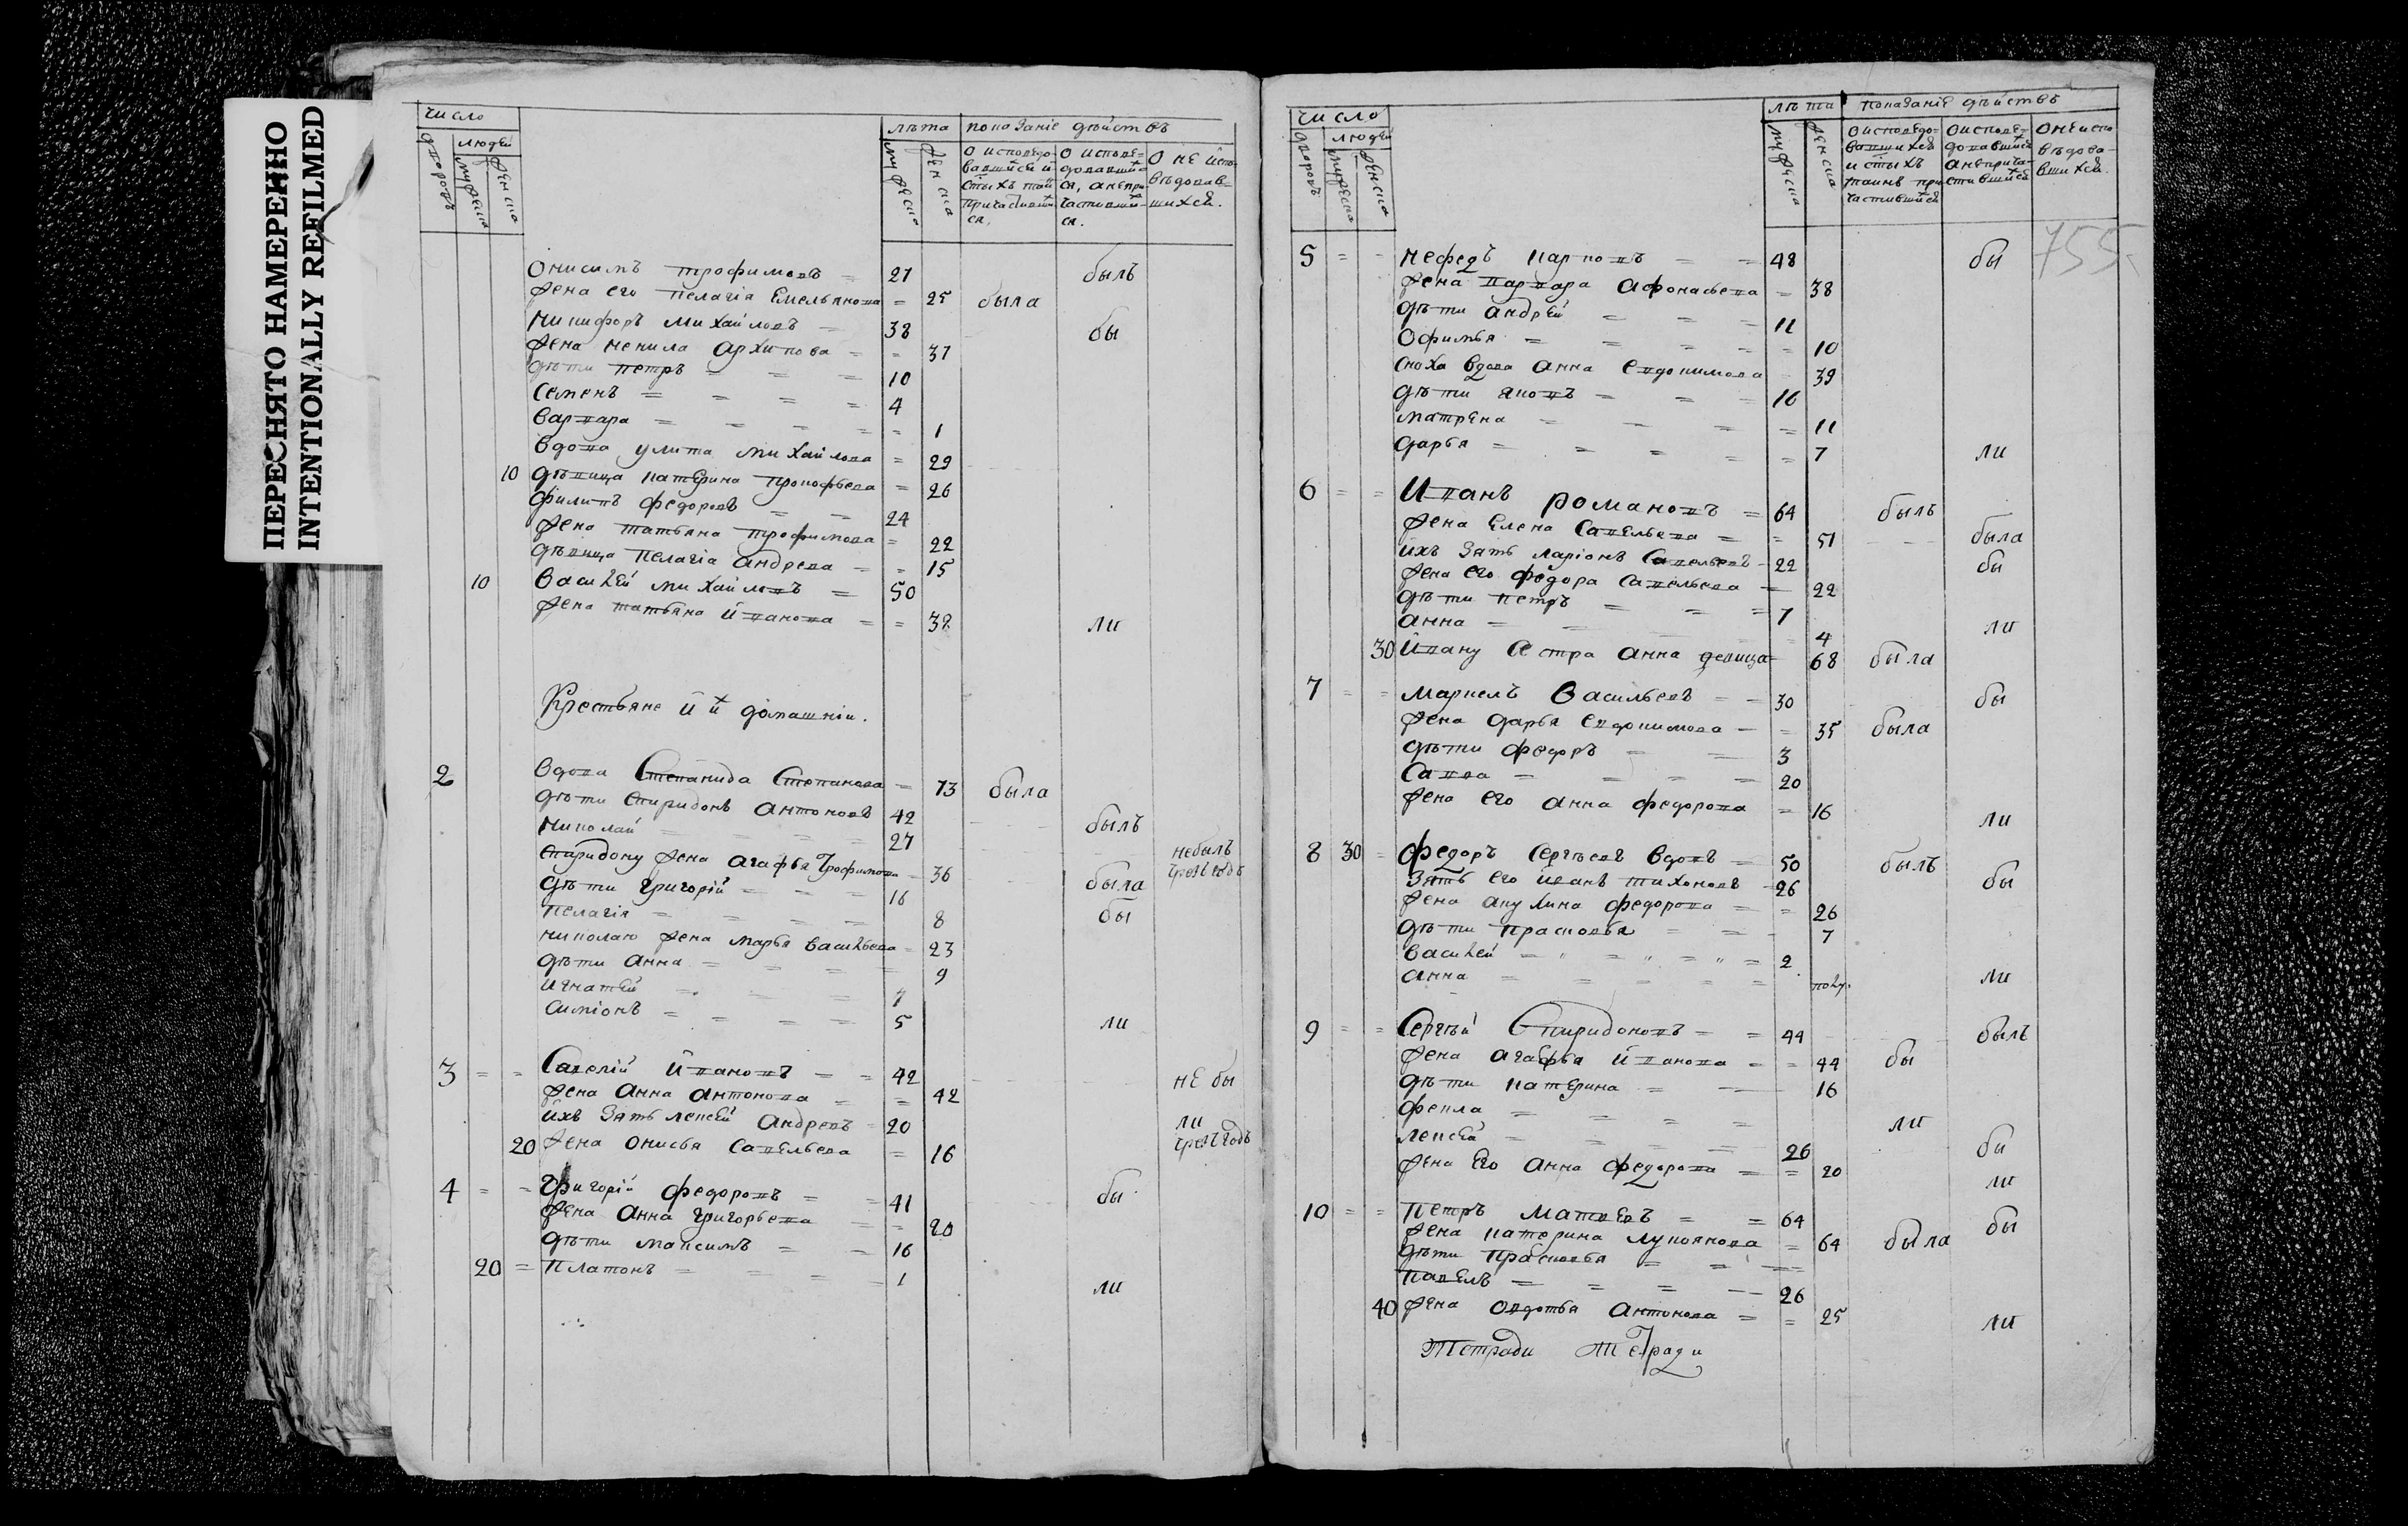 ПЕРЕСНЯТО НАМЕРЕННО
INTENTIONALLY REFILMED
число
людей
дворовъ
мужеска
женска
лѣта
мужеска
женска
показаніе дѣйствъ
О исповедо-
вавшийся и
стыхъ таи
причастивши
ся.
О испове-
довавший-
ся, анепри-
частивший-
ся.
О не испо-
вѣдовав-
шихся.
Онисимъ трофимовъ = 21 былъ
жена его пелагія Емельянова = 25 была
Никифоръ михайловъ = 38 бы
жена ненила архипова = = 37
дѣти петръ = = = 10
семенъ = = = = 4
варвара = = = = = 1
вдова улита михайлова = 29
10 дѣвица катерина прокофьева = 26
филипъ федоровъ = = 24
жена татьяна трофимова = 22
дѣвица пелагія андрева = = 15
10 василей михайловъ = 50
жена татьяна йванова = = 38 ли
Крестьяне й й домашніи.
2 вдова Степанида Степанова = 73 была
дѣти спиридонъ антоновъ 42 былъ
николай = = = = 27 небылъ
спиридону жена агафья трофимова = 36 была
дѣти григорій = = = 16
пелагія = = = = 8 бы
николаю жена марья васильева = 23
дѣти анна = = = = 9
игнатей = = = = 7
симіонъ = = = = 5 ли
3 = = Савелій йвановъ = = 42 не бы
жена анна антонова = = 42
ихъ зять лексей андревъ = 20 ли
20 жена онисья савельева = 16
4 = = Григорій федоровъ = = 41 бы
жена анна григорьева = = 20
дѣти максимъ = = 16
20 = платонъ = = = = 1 ли
число
людей
дворовъ
мужеска
женска
лѣта
мужеска
женска
показаніе дѣйствъ
О исповедо-
вавшихся
и стыхъ
таинъ при
частившийся
О испове-
довавшийся
анеприча-
стившийся
О не испо
вѣдова-
вшихся.
755
5 = = нефедъ карповъ = = 48 бы
жена варвара афонасьева = 38
дѣти андрей = = = 11
Офимья = = = = = 10
сноха вдова анна евдокимова = 39
дѣти яковъ = = = 16
матрена = = = = 11
дарья = = = = = 7 ли
6 = = Иванъ романовъ = 64 былъ
жена Елена Савельева = = 51 была
ихъ зять ларіонъ Савельевъ = 22 бы
жена его федора савельева = 22
дѣти петръ = = = 7
анна = = 4 ли
30 йвану сестра анна девица = 68 была
7 = = маркелъ Васильевъ = = 30 бы
жена дарья евдокимова = = 35 была
дѣти федоръ = = 3
Савва = = = = 20
жена его анна федорова = 16 ли
8 30 = федоръ сергѣевъ вдовъ = 50 былъ
зять его иванъ тихоновъ = 26 бы
жена акулина федорова = = 26
дѣти прасковья = = = 7
василей = = = = 2
анна = = = = = полу. ли
9 = = Сергѣй Спиридоновъ = = 44 былъ
жена агафья йванова = = 44 бы
дѣти катерина = = 16
фекла = = = = ли
лексей = = = = 26 бы
жена его анна федорова = = 20 ли
10 = = петръ матвевъ = = 64 бы
жена катерина лукоянова = 64 была
дѣти прасковья = = =
павелъ = = = = 26
40 жена овдотья антонова = = 25 ли
Тетради тетради